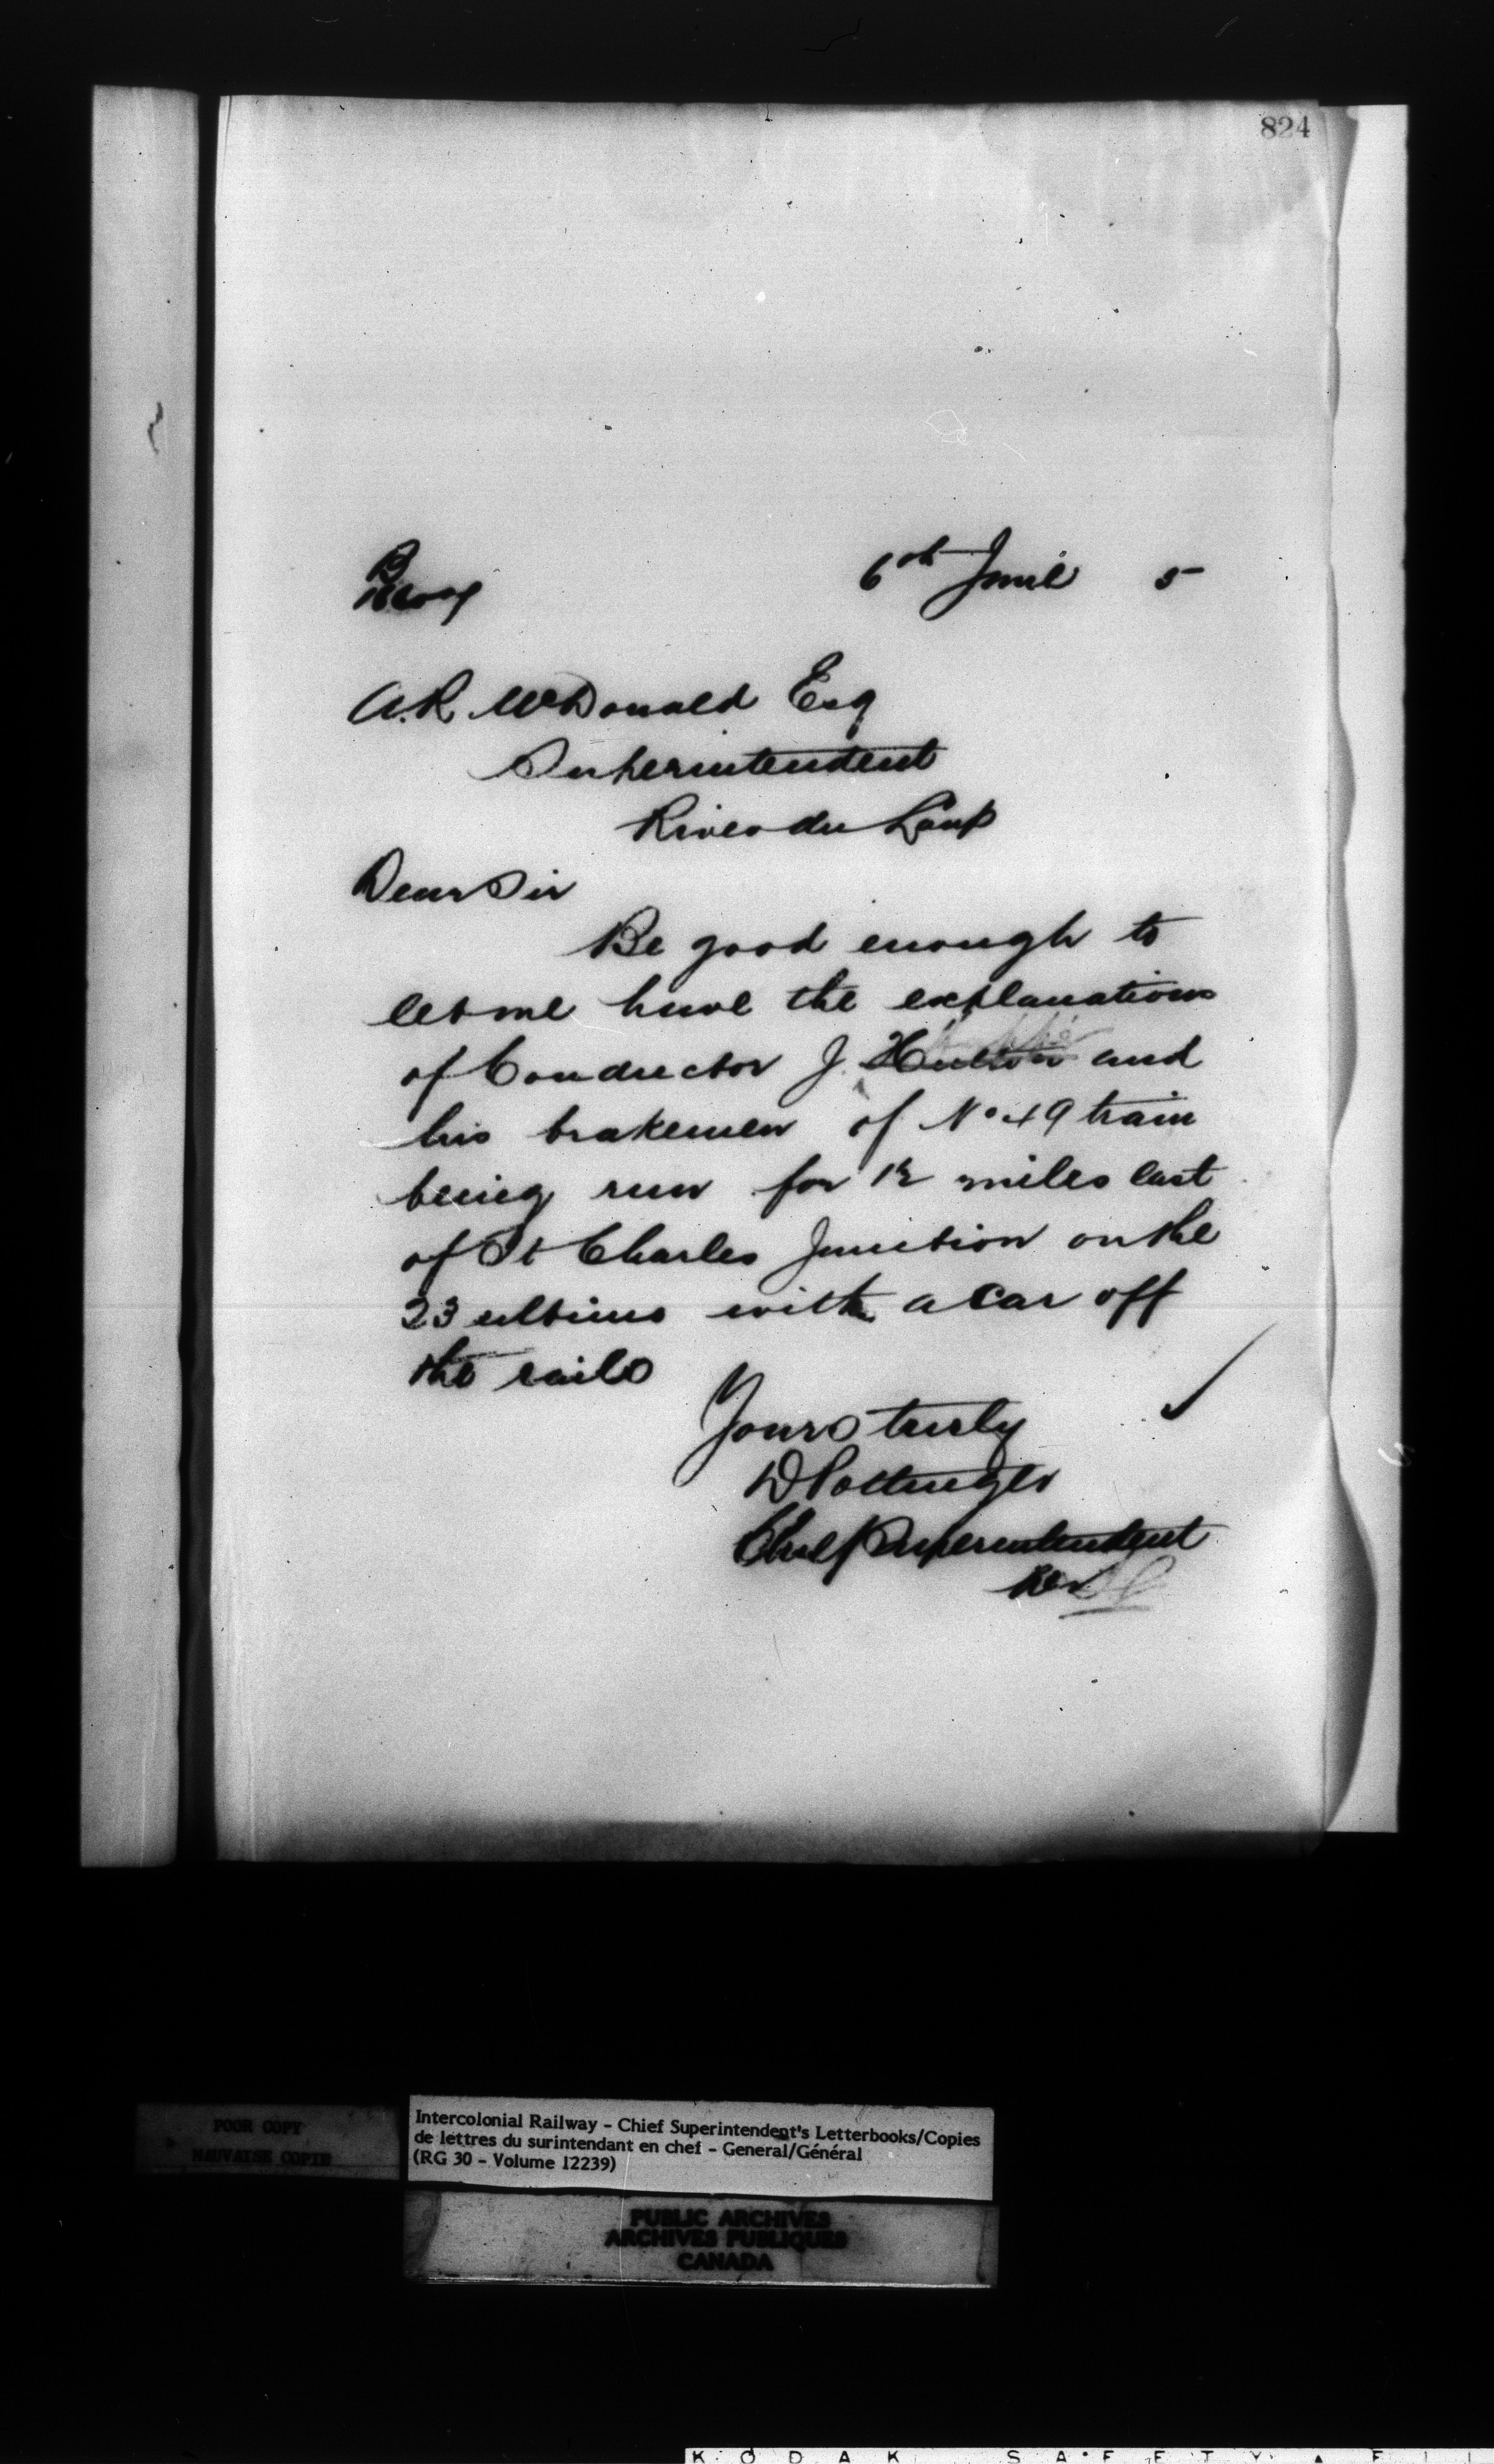 824
6th June 5
A.R. McDonald Esq
Superintendent
River du Loup
Dear Sir
Be good enough to
let me have the explanations
of Conductor J. and
his brakemen of No 49 train
being run for 12 miles east
of St Charles Junction on the
23 ultimo with a car off
the rails
Yours truly
D Pottinger
Chief Superintendent
POOR COPY
MAUVAISE COPIE
Intercolonial Railway - Chief Superintendent's Letterbooks/Copies
de lettres du surintendant en chef - General/Général
(RG 30 - Volume 12239)
PUBLIC ARCHIVES
ARCHIVES PUBLIQUES
CANADA
KODAK SAFETY